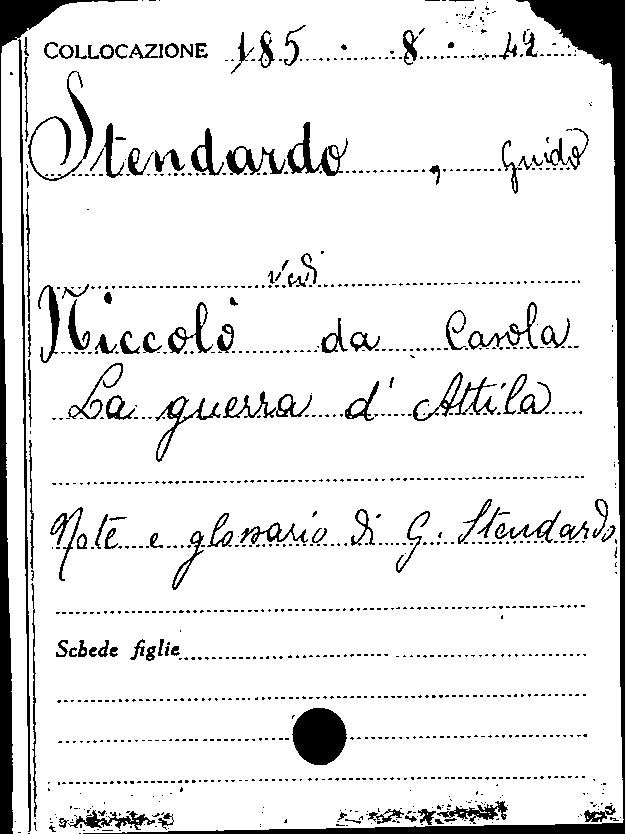 COLLOCAZIONE 185 . 8 . 42
Stendardo , Guido
vedi
Niccolò da Casola
La guerra d'Attila
Note e glossario di G. Stendardo
Schede figlie